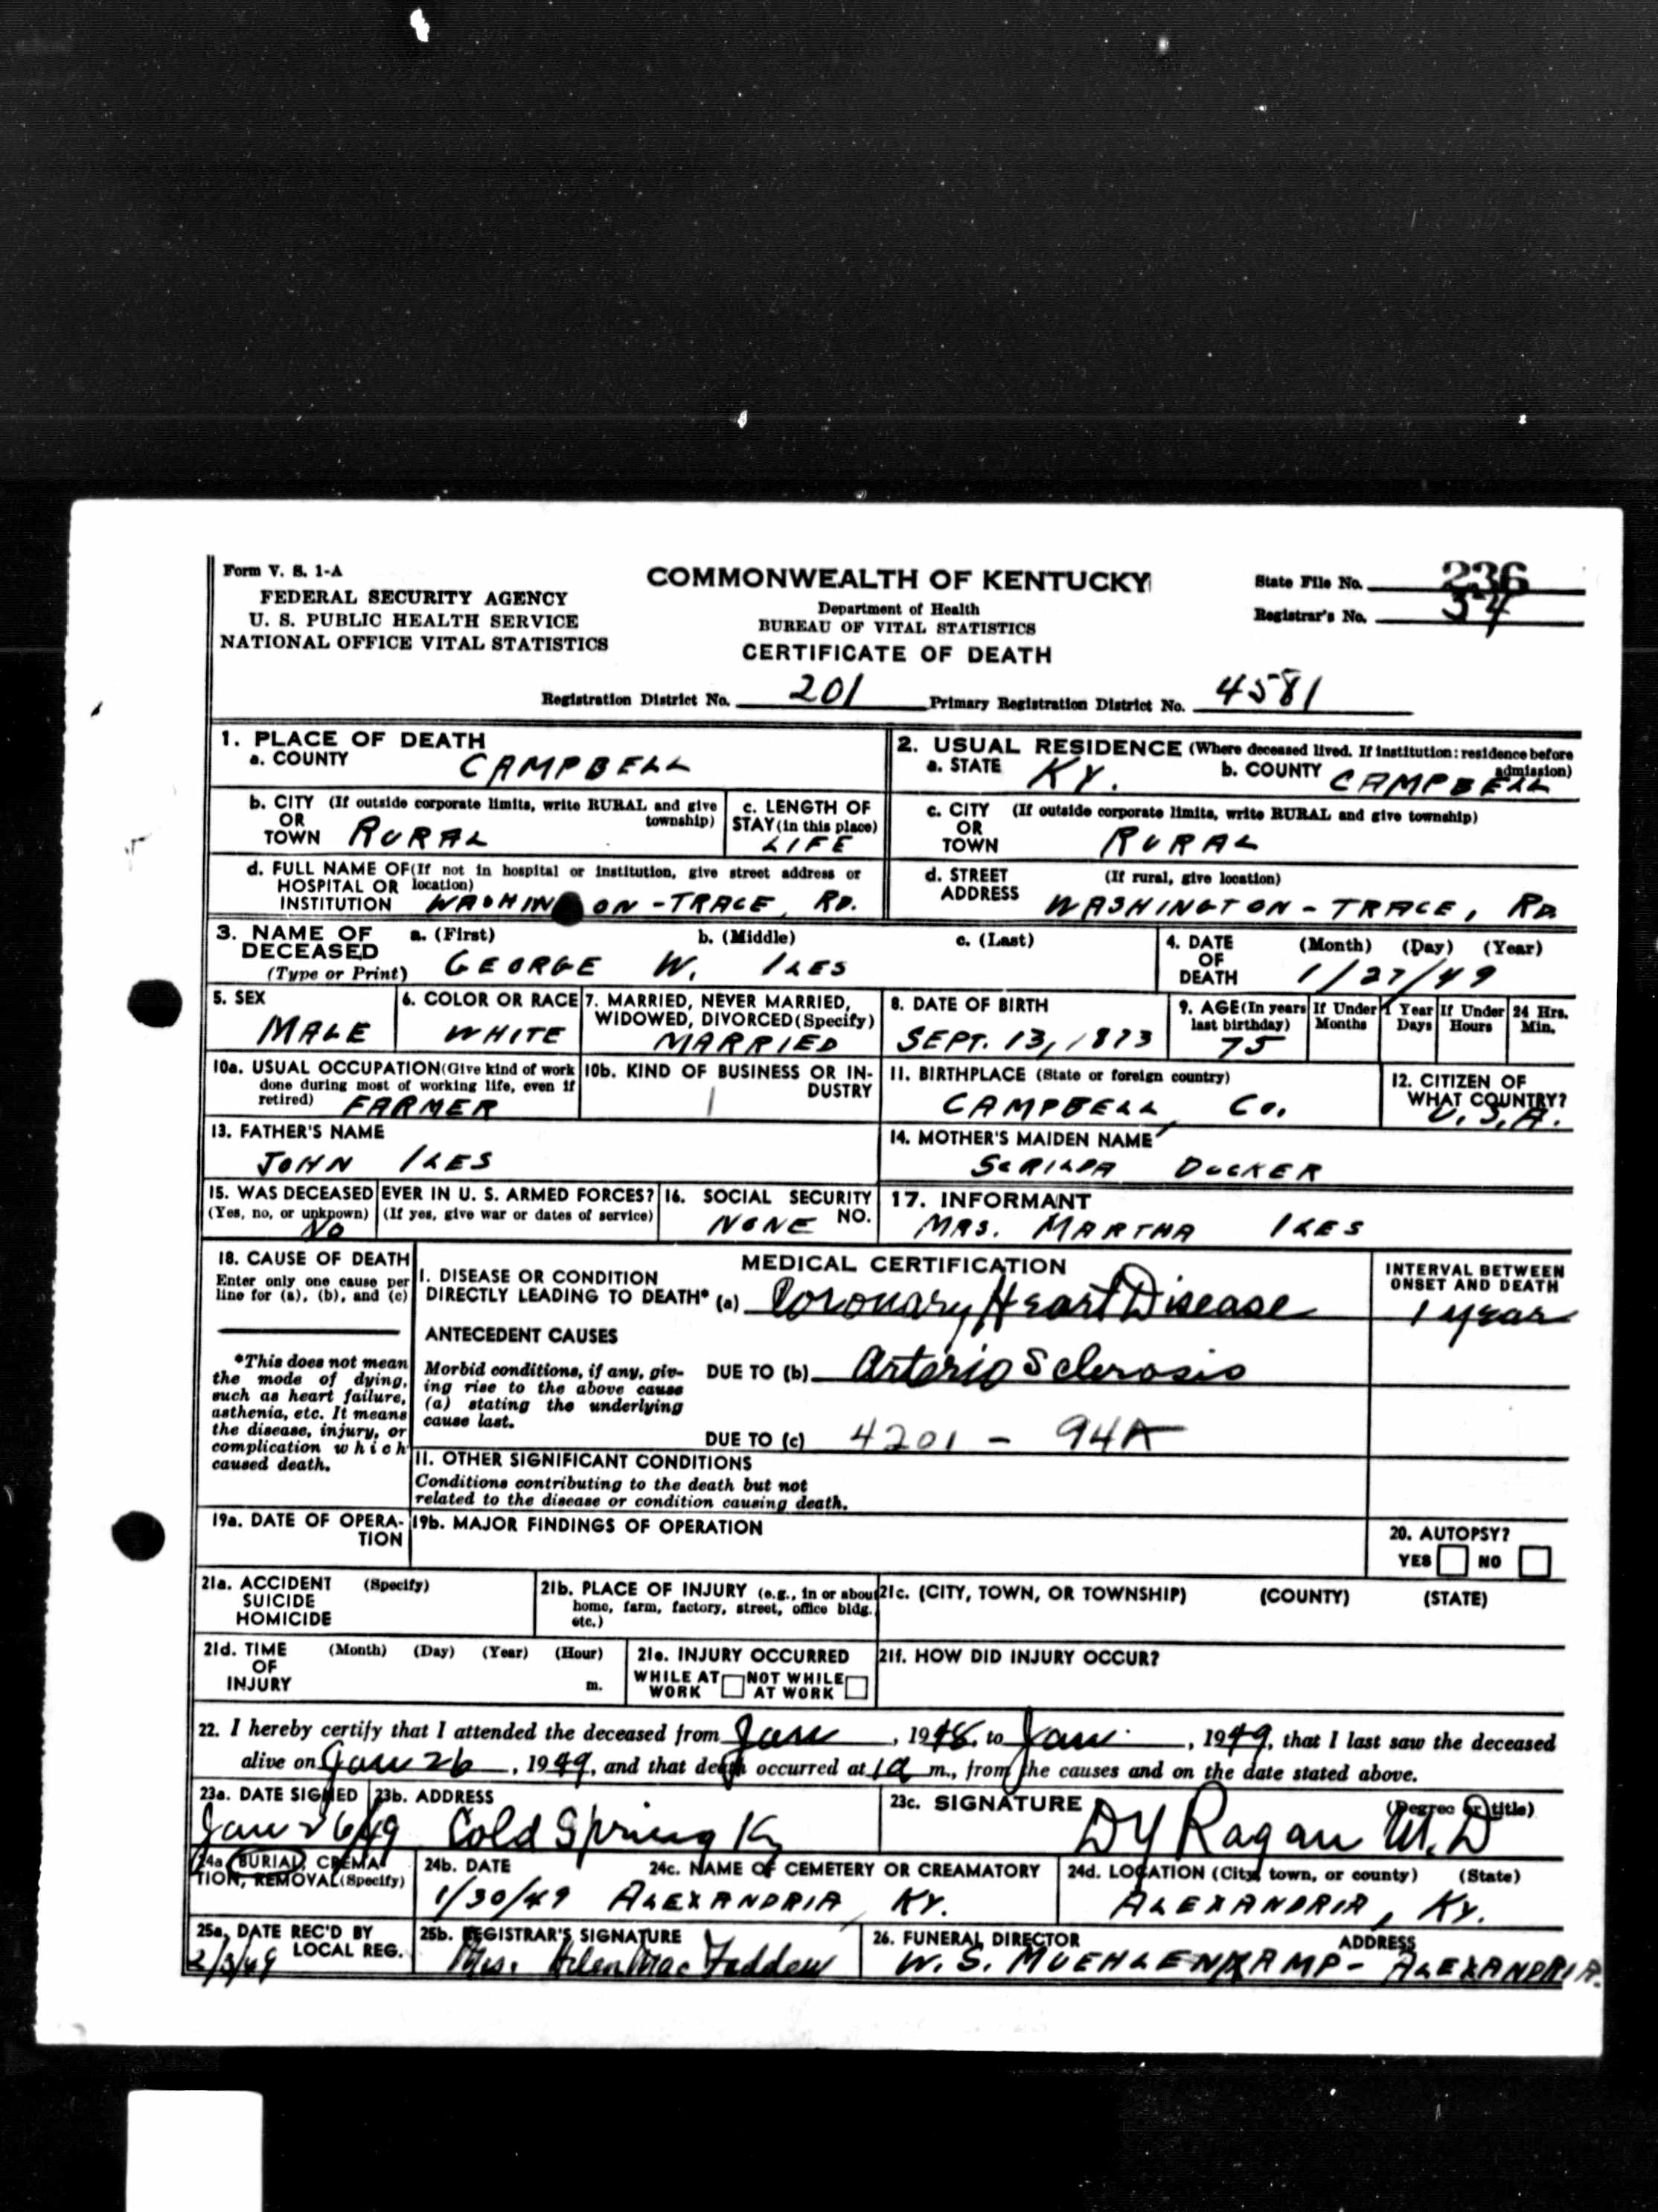 Form V. S. 1-A
FEDERAL SECURITY AGENCY
U. S. PUBLIC HEALTH SERVICE
NATIONAL OFFICE VITAL STATISTICS
COMMONWEALTH OF KENTUCKY
Department of Health
BUREAU OF VITAL STATISTICS
CERTIFICATE OF DEATH
State File No. 236
Registrar's No. 34
Registration District No. 201 Primary Registration District No. 4581
1. PLACE OF DEATH
a. COUNTY CAMPBELL
2. USUAL RESIDENCE (Where deceased lived. If institution: residence before admission)
a. STATE KY. b. COUNTY CAMPBELL
b. CITY (If outside corporate limits, write RURAL and give township)
OR
TOWN RURAL
c. LENGTH OF
STAY (in this place)
LIFE
c. CITY (If outside corporate limits, write RURAL and give township)
OR
TOWN RURAL
d. FULL NAME OF (If not in hospital or institution, give street address or
HOSPITAL OR location)
INSTITUTION WASHIN ON - TRACE, RD.
d. STREET (If rural, give location)
ADDRESS WASHINGTON - TRACE, RD.
3. NAME OF DECEASED
(Type or Print)
a. (First) b. (Middle) c. (Last)
GEORGE W. ILES
4. DATE OF DEATH (Month) (Day) (Year)
1/27/49
5. SEX
MALE
6. COLOR OR RACE
WHITE
7. MARRIED, NEVER MARRIED,
WIDOWED, DIVORCED (Specify)
MARRIED
8. DATE OF BIRTH
SEPT. 13, 1873
9. AGE (In years last birthday)
75
If Under 1 Year
Months Days
If Under 24 Hrs.
Hours Min.
10a. USUAL OCCUPATION (Give kind of work
done during most of working life, even if
retired) FARMER
10b. KIND OF BUSINESS OR INDUSTRY
11. BIRTHPLACE (State or foreign country)
CAMPBELL Co.
12. CITIZEN OF
WHAT COUNTRY?
U.S.A.
13. FATHER'S NAME
JOHN ILES
14. MOTHER'S MAIDEN NAME
DUCKER
15. WAS DECEASED EVER IN U. S. ARMED FORCES?
(Yes, no, or unknown) (If yes, give war or dates of service)
NO
16. SOCIAL SECURITY NO.
NONE
17. INFORMANT
MRS. MARTHA ILES
18. CAUSE OF DEATH
Enter only one cause per
line for (a), (b), and (c)
*This does not mean
the mode of dying,
such as heart failure,
asthenia, etc. It means
the disease, injury, or
complication which
caused death.
MEDICAL CERTIFICATION
I. DISEASE OR CONDITION
DIRECTLY LEADING TO DEATH* (a) Coronary Heart Disease
INTERVAL BETWEEN
ONSET AND DEATH
1 year
ANTECEDENT CAUSES
Morbid conditions, if any, giv-
ing rise to the above cause
(a) stating the underlying
cause last.
DUE TO (b) Arterio Sclerosis
DUE TO (c) 4201 - 94A
II. OTHER SIGNIFICANT CONDITIONS
Conditions contributing to the death but not
related to the disease or condition causing death.
19a. DATE OF OPERA-
TION
19b. MAJOR FINDINGS OF OPERATION
20. AUTOPSY?
YES NO
21a. ACCIDENT (Specify)
SUICIDE
HOMICIDE
21b. PLACE OF INJURY (e.g., in or about
home, farm, factory, street, office bldg.,
etc.)
21c. (CITY, TOWN, OR TOWNSHIP) (COUNTY) (STATE)
21d. TIME (Month) (Day) (Year) (Hour)
OF
INJURY m.
21e. INJURY OCCURRED
WHILE AT NOT WHILE
WORK AT WORK
21f. HOW DID INJURY OCCUR?
22. I hereby certify that I attended the deceased from Jan, 1948, to Jan., 1949, that I last saw the deceased
alive on Jan 26, 1949, and that death occurred at 1 a m., from the causes and on the date stated above.
23a. DATE SIGNED
Jan 26/49
23b. ADDRESS
Cold Spring Ky
23c. SIGNATURE (Degree or title)
DY Ragan M.D
24a. BURIAL, CREMA-
TION, REMOVAL (Specify)
24b. DATE
1/30/49
24c. NAME OF CEMETERY OR CREAMATORY
ALEXANDRIA, KY.
24d. LOCATION (City, town, or county) (State)
ALEXANDRIA, KY.
25a. DATE REC'D BY
LOCAL REG.
2/3/49
25b. REGISTRAR'S SIGNATURE
Mrs. Helen Mac Fadden
26. FUNERAL DIRECTOR ADDRESS
W. S. MUEHLENKAMP - ALEXANDRIA.